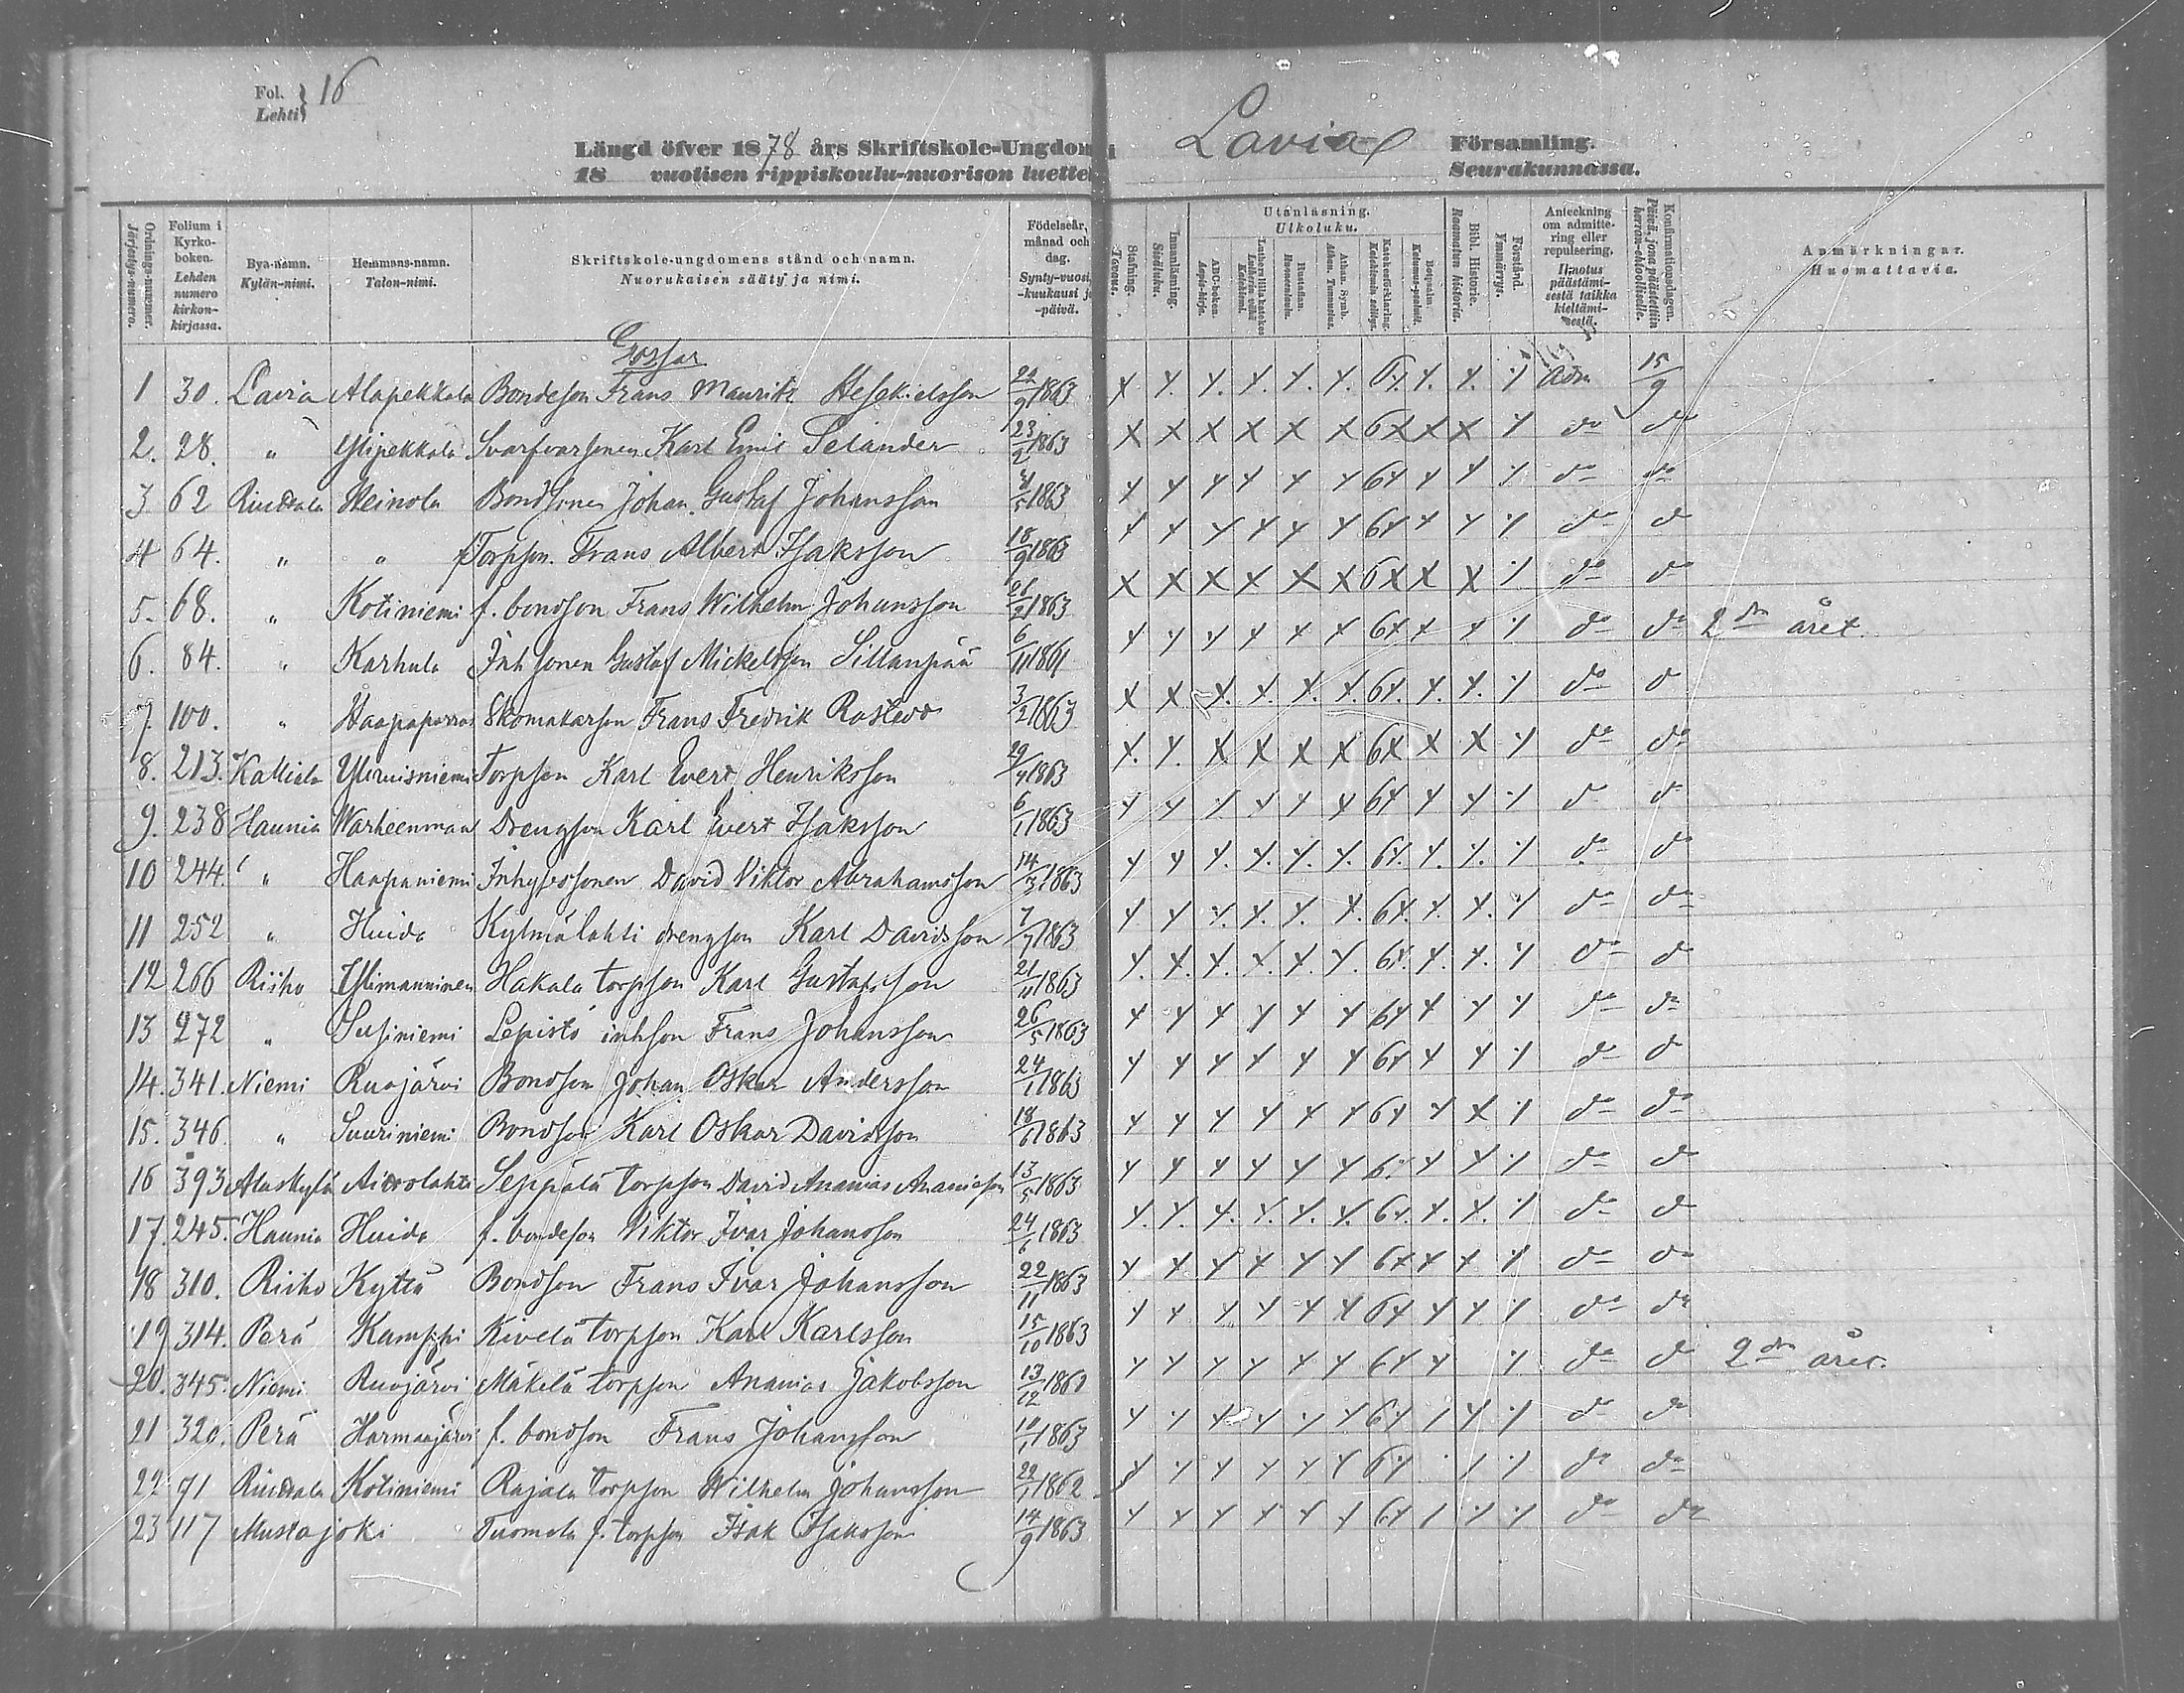 Fol. Lehti } 16
Längd öfver 1878 års Skriftskole-Ungdom i Lavia Församling.
18 vuotisen rippiskoulu-nuorison luettelo Seurakunnassa.
Ordnings-nummer. Järjestys-numero. Folium i Kyrko-boken. Lehden numero kirkon-kirjassa. Bya-namn. Kylän-nimi. Hemmans-namn. Talon-nimi. Skriftskole-ungdomens stånd och namn. Nuorukaisen sääty ja nimi. Födelseår, månad och dag. Synty-vuosi, -kuukausi ja -päivä. Stafning. Tavaus. Innanläsning. Sisäluku. Utanläsning. Ulkoluku. ABC-boken. Aapis-kirja. Luthers lilla katekes Lutherin vähä Katekismi. Hustaflan. Huoneentaulu. Athan. Symb. Athan. Tunnustus. Katekesförklaring. Katekismin selitys. Botpsalm. Katumus-psalmit. Bibl. Historie. Raamatun historia. Förstånd. Ymmärrys. Anteckning om admittering eller repulsering. Ilmotus päästämisestä taikka kieltämisestä. Konfirmationsdagen. Päivä, jona päästettiin herran-ehtoolliselle. Anmärkningar. Huomattavia.
Gossar
1 30. Lavia Alapekkala Bondeson Frans Maurits Heskielsson 22/9 1863 x y. y. y. y. y. 6y y. y. y Adm 15/9
2. 28. " Ylipekkala Svarfvarsonen Karl Emil Selander 23/2 1863 x x x x x x 6x x x y do do
3 62 Riuttala Heinola Bondsonen Johan Gustaf Johansson 4/5 1863 y y y y y y 6y y y y do do
4 64. " " f Torpson. Frans Albert Isaksson 18/9 1863 y y y y y y 6y y y y do do
5. 68. " Kotiniemi f. bondson Frans Wilhelm Johansson 26/2 1863 x x x x x x 6x x x y do do
6. 84. " Karhula Inhsonen Gustaf Mickelsson Sillanpää 6/11 1861 y y y y y y 6y y y y do do 2dra året
7. 100. " Skomakarson Frans Fredrik 3/2 1863 x x x. y. y. y. 6y. y. y. y do do
8. 213. Kalliala Torpson Karl Evert Henriksson 29/7 1863 x. y. x x x x 6x x x y do do
9. 238 Haunia Warheenmaa Drengson Karl Evert Isaksson 6/1 1863 y y y y y y 6y y y y do do
10 244. " Haapaniemi Inhysessonen David Viktor Abrahamsson 14/3 1863 y y y. y. y. y. 6y. y. y. y do do
11 252 " Huida Kylmälahti drengson Karl Davidsson 7/7 1863 y. y y. y. y. y. 6y. y. y. y do do
12 266 Riiho Ylimanninen Hakala torpson Karl Gustafsson 21/11 1863 y. y. y. y. y. y. 6y. y. y. y do do
13 272 " Susiniemi Lepistö inhson Frans Johansson 26/5 1863 y y y y y y 6y y y y do do
14. 341. Niemi Ruojärvi Bondson Johan Oskar Andersson 24/1 1863 y y y y y y 6y y y y do do
15. 346. " Suuriniemi Bondson Karl Oskar Davidsson 18/6 1863 y y y y y y 6y y x y do do
16 393 Alaskylä Airolahti Seppälä torpson David Ananias Ananiasson 13/5 1863 y y y y y y 6y y y y do do
17. 245. Haunia Huida f. bondeson Viktor Ivar Johansson 24/6 1863 y. y. y. y. y. y. 6y. y. y. y do do
18 310. Riiho Kyttä Bondson Frans Ivar Johansson 22/11 1863 y y y y y y 6y y y y do do
19 314. Perä Kamppi Kivelä torpson Karl Karlsson 15/10 1863 y y y y y y 6y y y y do do
20. 345. Niemi Ruojärvi Mäkelä torpson Ananias Jakobsson 13/12 1860 y y y y y y 6y y y do do 2dra året.
21 320. Perä Harmaajärvi f. bondson Frans Johansson 10/1 1863 y y y y y y 6y y y y do do
22 91 Riuttala Kotiniemi Rajala torpson Wilhelm Johansson 22/1 1862 y y y y y y 6y y y do do
23 117 Mustajoki Tuomola f. torpson Isak Isaksson 14/9 1863 y y y y y y 6y y y y do do